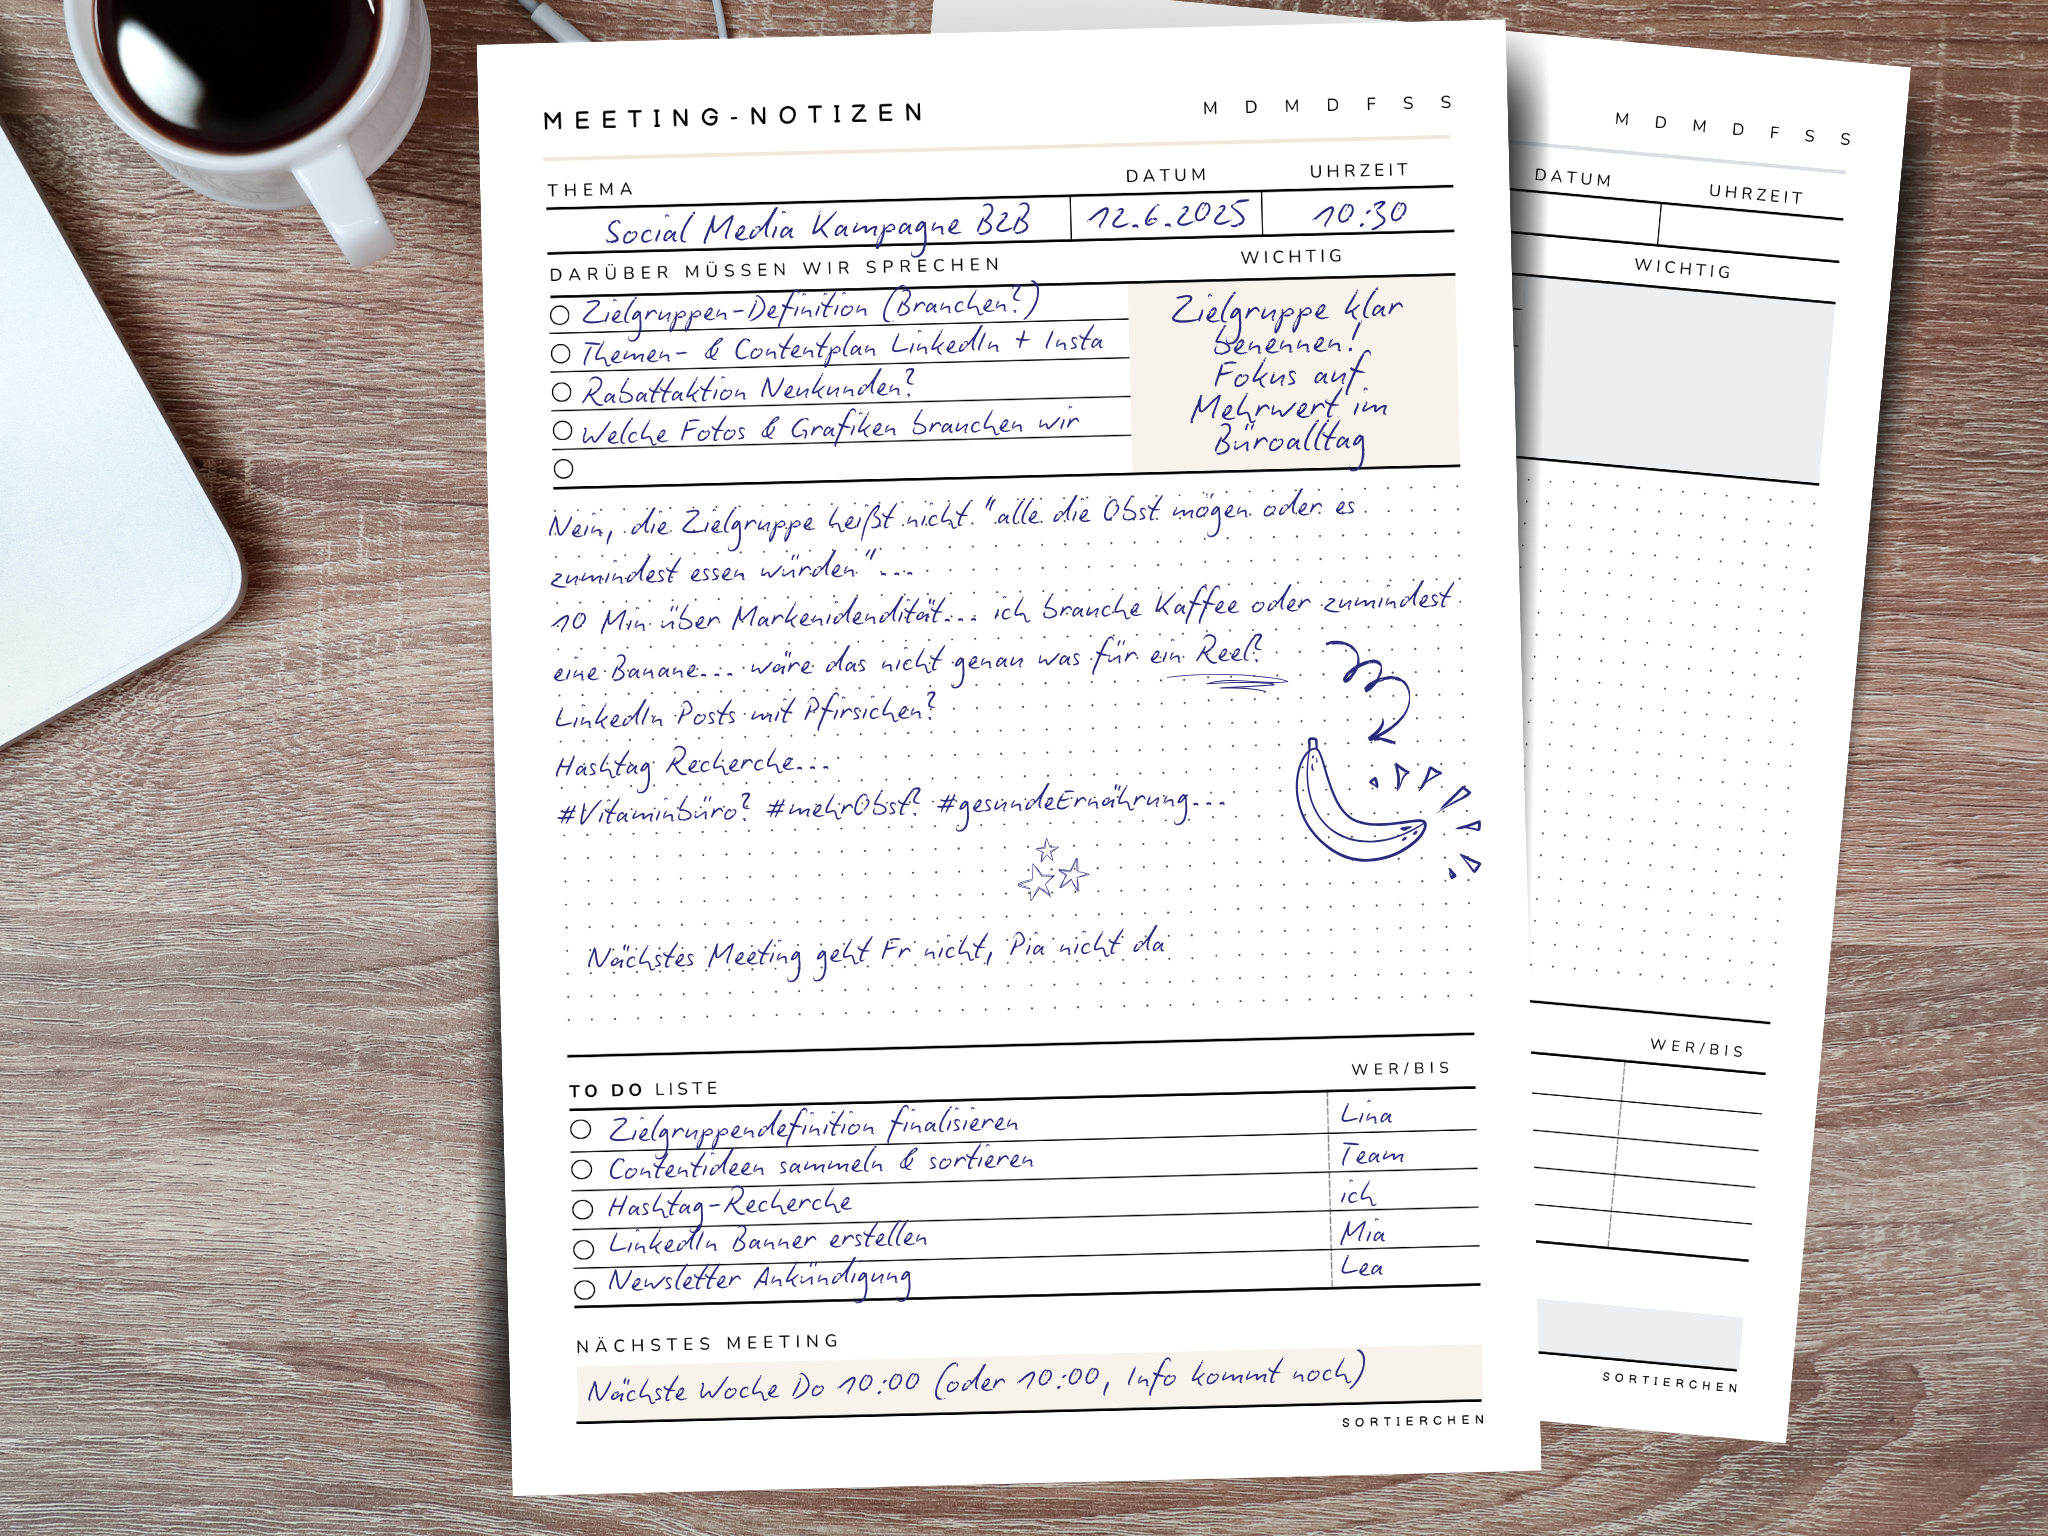 MEETING-NOTIZEN
M D M D F S S
THEMA
DATUM
UHRZEIT
Social Media Kampagne B2B
12.6.2025
10:30
DARÜBER MÜSSEN WIR SPRECHEN
WICHTIG
Zielgruppen-Definition (Branchen?)
Themen- & Contentplan LinkedIn + Insta
Rabattaktion Neukunden?
Welche Fotos & Grafiken brauchen wir
Zielgruppe klar
benennen!
Fokus auf
Mehrwert im
Büroalltag
Nein, die Zielgruppe heißt nicht "alle die Obst mögen oder es
zumindest essen würden"...
10 Min über Markenidendität... ich brauche Kaffee oder zumindest
eine Banane... wäre das nicht genau was für ein Reel?
LinkedIn Posts mit Pfirsichen?
Hashtag Recherche...
#Vitaminbüro? #mehrObst? #gesundeErnährung...
Nächstes Meeting geht Fr nicht, Pia nicht da
TO DO LISTE
WER/BIS
Zielgruppendefinition finalisieren
Lina
Contentideen sammeln & sortieren
Team
Hashtag-Recherche
ich
LinkedIn Banner erstellen
Mia
Newsletter Ankündigung
Lea
NÄCHSTES MEETING
Nächste Woche Do 10:00 (oder 10:00, Info kommt noch)
SORTIERCHEN
M D M D F S S
DATUM
UHRZEIT
WICHTIG
WER/BIS
SORTIERCHEN